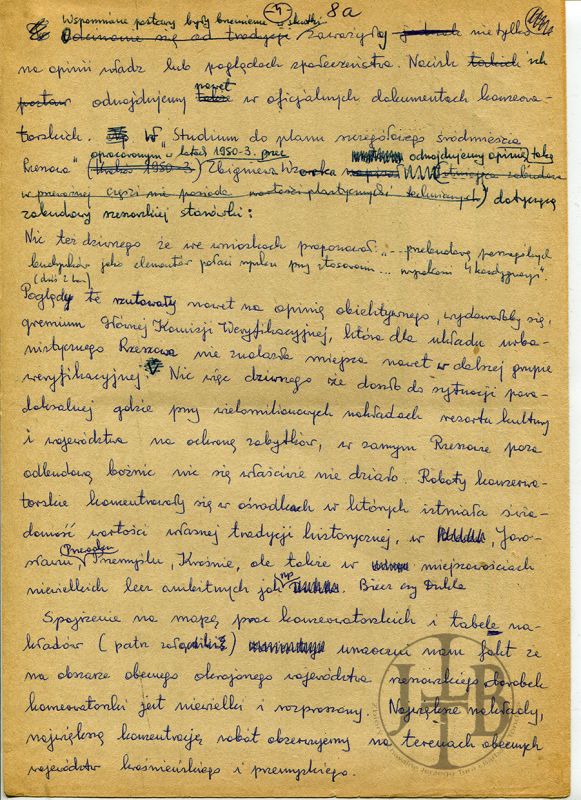 -4- 8a
Wspomniane postawy były brzemienne w skutki
Odcinanie się od tradycji zaważyły nie tylko
na opinii władz lub poglądach społeczeństwa. Nacisk takich ich
postaw odnajdujemy nawet w oficjalnych dokumentach konserwa-
torskich. W "Studium do planu szczegółowego śródmieścia
Rzeszowa" opracowanym w latach 1950-3. przez (lata 1950-3) Zbigniewa Wzorka odnajdujemy opinię, taką (istniejąca zabudowa
w przeważnej części nie posiada wartości plastycznych i technicznych) dotyczącą
zabudowy rzeszowskiej starówki:
Nic też dziwnego że we wnioskach proponował "... przebudowę poszczególnych
budynków jako elementów połaci rynku przy stosowaniu ... wysokości 4 kondygnacji".
(dziś 2 kon.)
Poglądy te rzutowały nawet na opinię obiektywnego, wydawałoby się,
gremium Głównej Komisji Weryfikacyjnej, która dla układu urba-
nistycznego Rzeszowa nie znalazła miejsca nawet w dalszej grupie
weryfikacyjnej. Nic więc dziwnego że doszło do sytuacji para-
doksalnej gdzie przy wielomilionowych nakładach resortu kultury
i województwa na ochronę zabytków, w samym Rzeszowie poza
odbudową bożnic nic się właściwie nie działo. Roboty konserwa-
torskie koncentrowały się w ośrodkach w których istniała świa-
domość wartości własnej tradycji historycznej, w Jaro-
sławiu, Przeworsku, Przemyślu, Krośnie, ale także w miejscowościach
niewielkich lecz ambitnych jak np. Biecz czy Dukla
Spojrzenie na mapę prac konserwatorskich i tabelę na-
kładów (patrz załączniki) unaoczni nam fakt że
na obszarze obecnego okrojonego województwa rzeszowskiego dorobek
konserwatorski jest niewielki i rozproszony. Największe nakłady,
największą koncentrację robót obserwujemy na terenach obecnych
województw krośnieńskiego i przemyskiego.
JTB